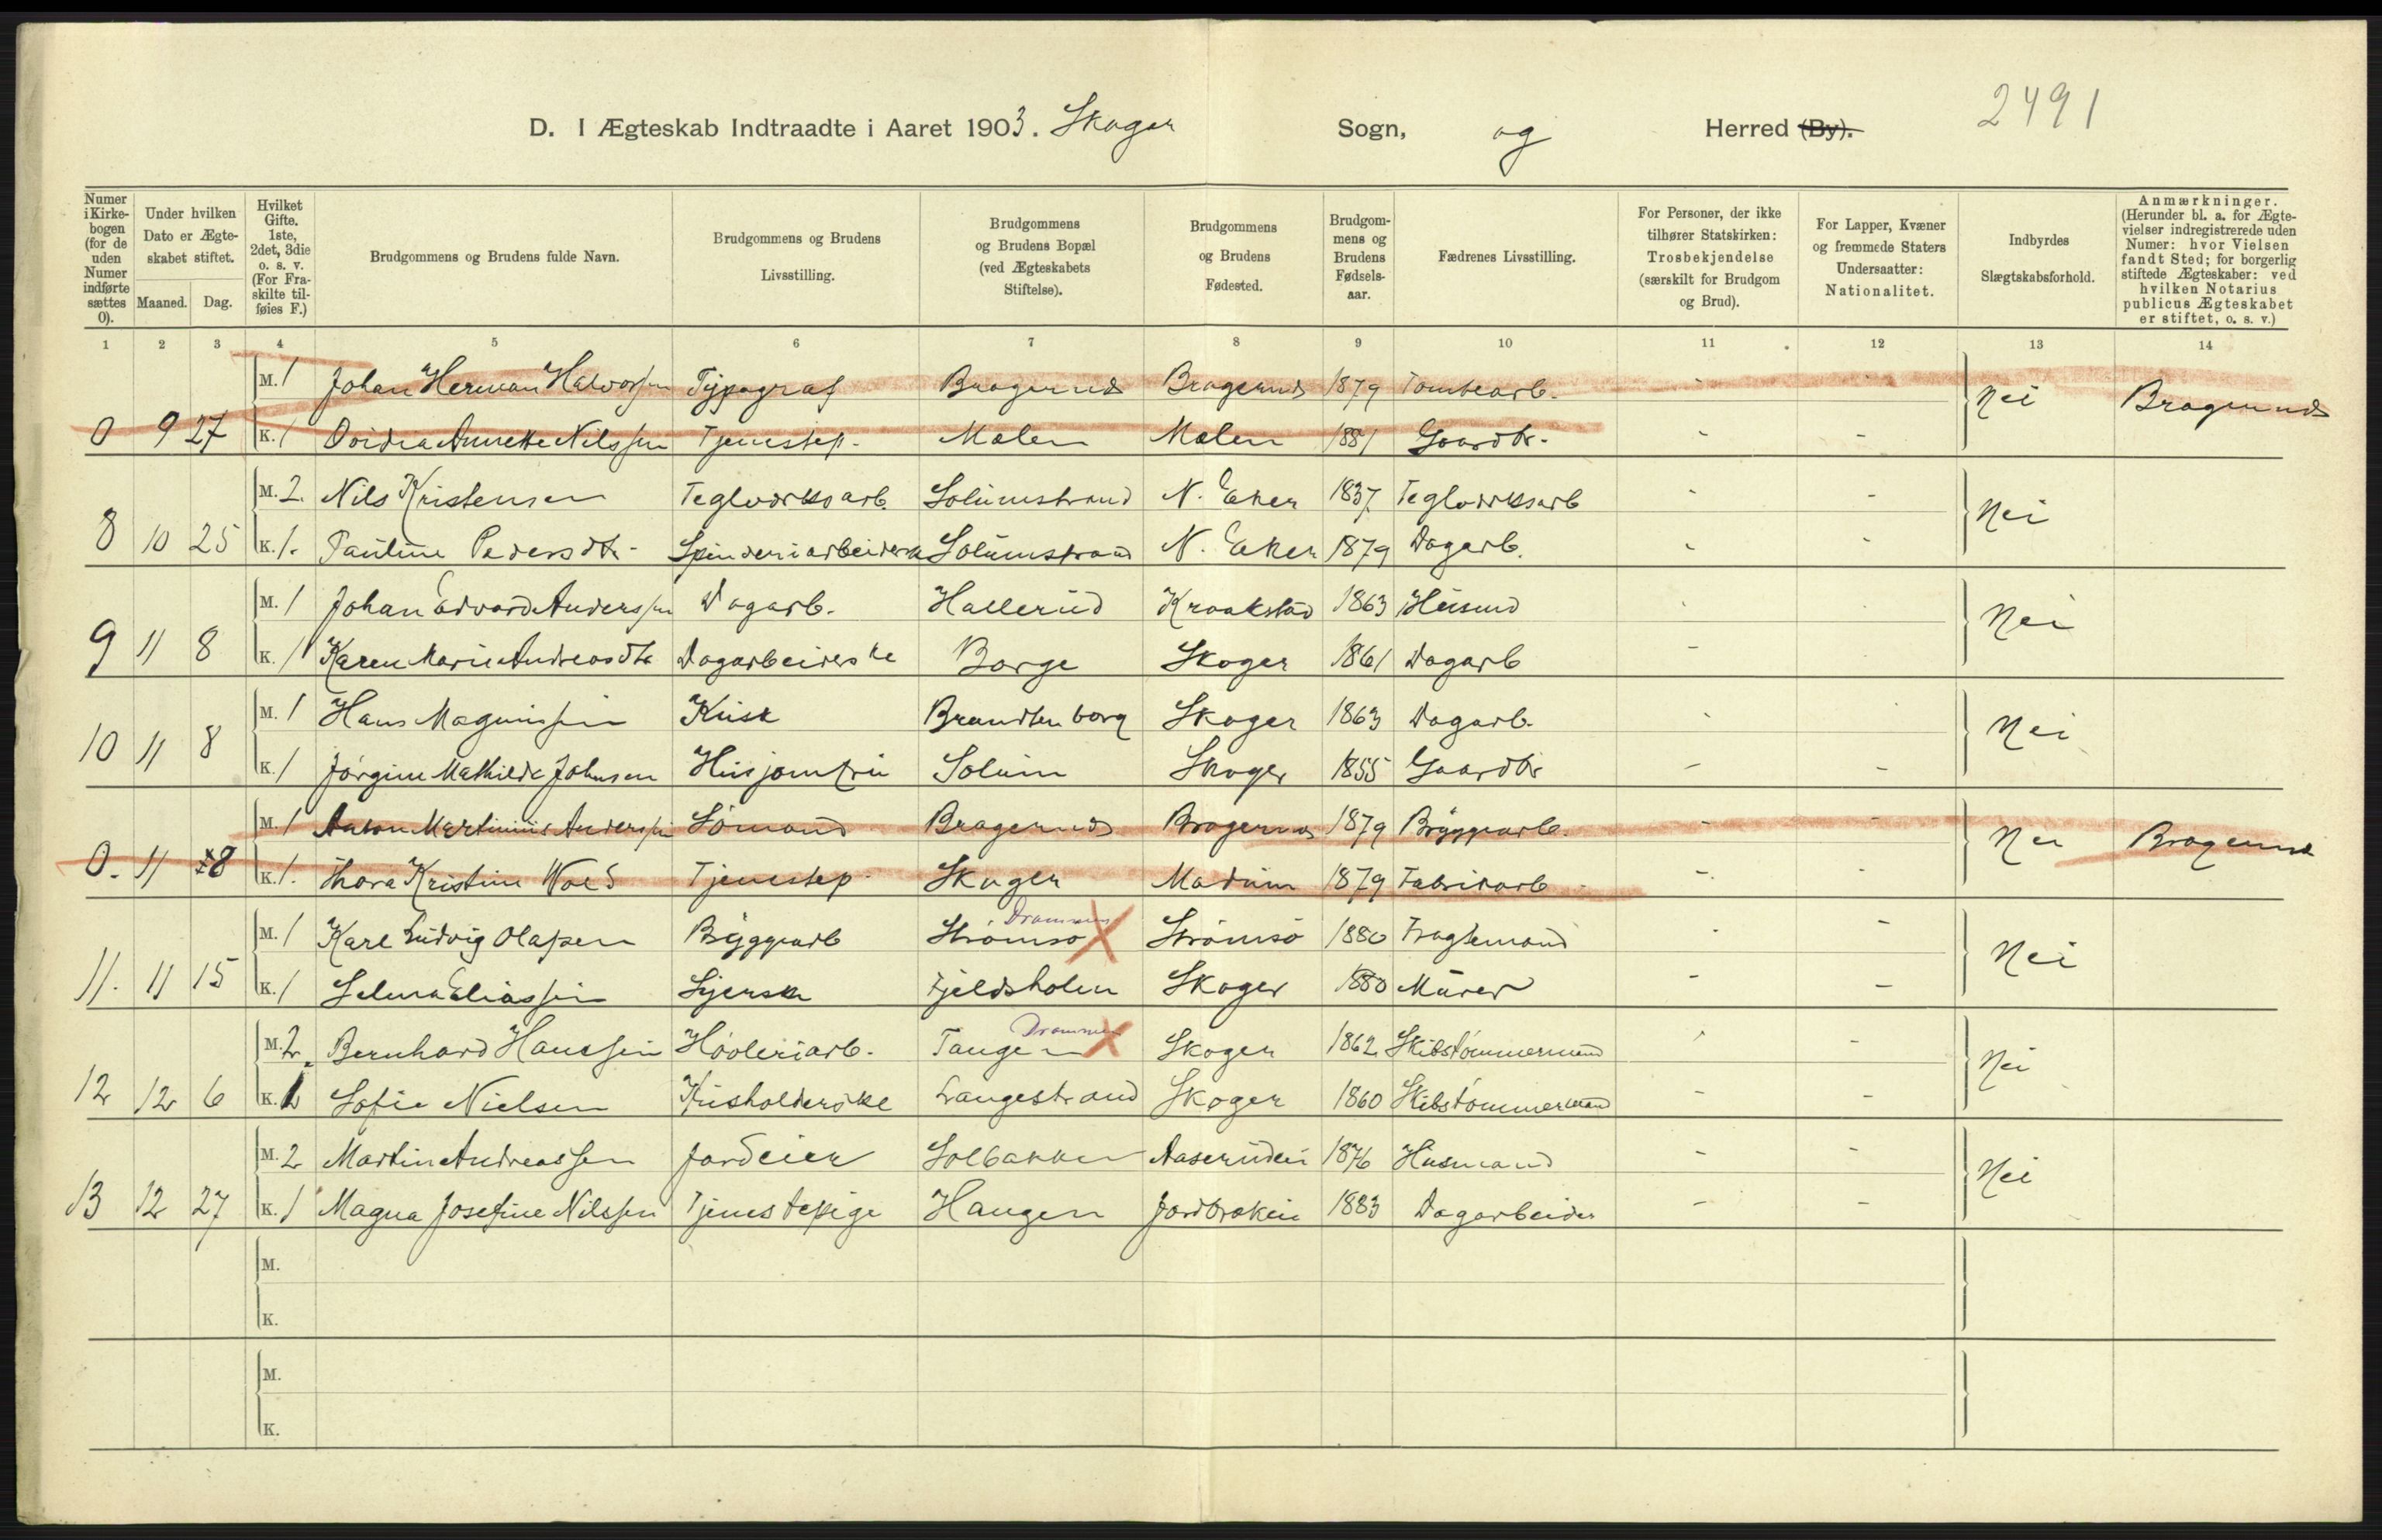 2491
D. I Ægteskab Indtraadte i Aaret 1903. Skoger Sogn, og Herred (By).
Numer i Kirke-bogen (for de uden Numer indførte sættes 0).
Under hvilken Dato er Ægte-skabet stiftet.
Maaned. Dag.
Hvilket Gifte. 1ste, 2det, 3die o. s. v. (For Fra-skilte til-føies F.)
Brudgommens og Brudens fulde Navn.
Brudgommens og Brudens Livsstilling.
Brudgommens og Brudens Bopæl (ved Ægteskabets Stiftelse).
Brudgommens og Brudens Fødested.
Brudgom-mens og Brudens Fødsels-aar.
Fædrenes Livsstilling.
For Personer, der ikke tilhører Statskirken: Trosbekjendelse (særskilt for Brudgom og Brud).
For Lapper, Kvæner og fremmede Staters Undersaatter: Nationalitet.
Indbyrdes Slægtskabsforhold.
Anmærkninger. (Herunder bl. a. for Ægte-vielser indregistrerede uden Numer: hvor Vielsen fandt Sted; for borgerlig stiftede Ægteskaber: ved hvilken Notarius publicus Ægteskabet er stiftet, o. s. v.)
1 2 3 4 5 6 7 8 9 10 11 12 13 14
M. 1 Johan Herman Halvorsen Typograf Bragernæs Bragernæs 1879 Tomtearb. - Nei Bragernæs
0 9 27 K. 1 Annette Nilssen Tjenestep. Molen Molen 1881 Gaardbr. - -
M. 2. Nils Kristensen Teglværksarb. Solumstrand N. Eker 1837 Teglværksarb - - Nei
8 10 25 K. 1. Pauline Pedersdtr. Spinderiarbeiderske Solumstrand N. Eker 1879 Dagarb. -
M. 1 Johan Edvard Anderssen Dagarb. Hallerud Kraakstad 1863 Husmd Nei
9 11 8 K. 1 Karen Marie Andreasdtr Dagarbeiderske Borge Skoger 1861 Dagarb -
M. 1 Hans Magnussen Kusk Brandtenborg Skoger 1863 Dagarb. - Nei
10 11 8 K. 1 Jørgine Mathilde Johnsen Husjomfru Solum Skoger 1855 Gaardbr - -
M. 1 Anton Martinius Anderssen Sømand Bragernæs Bragernæs 1879 Bryggearb. - - Nei Bragernæs
0. 11 8 K. 1. Thora Kristine Wold Tjenestep. Skoger Modum 1879 Fabrikarb - -
Drammen
M. 1 Karl Ludvig Olafsen Bryggearb Strømsø X Strømsø 1880 Fragtemand - - Nei
11. 11 15 K. 1 Selma Eliassen Syerske Fjeldsholen Skoger 1880 Murer - -
Drammen
M. 2. Bernhard Hanssen Høvleriarb. Tangen X Skoger 1862 Skibstømmermand - Nei
12 12 6 K. Sofie Nielsen Husholderske Langestrand Skoger 1860 Skibstømmermand - -
M. 2 Martin Andreassen Jordeier Solbakken Aaserudei 1876 Husmand - - Nei
13 12 27 K. 1 Magna Josefine Nilssen Tjenestepige Haugen Jordbrækei 1883 Dagarbeider - -
M.
K.
M.
K.